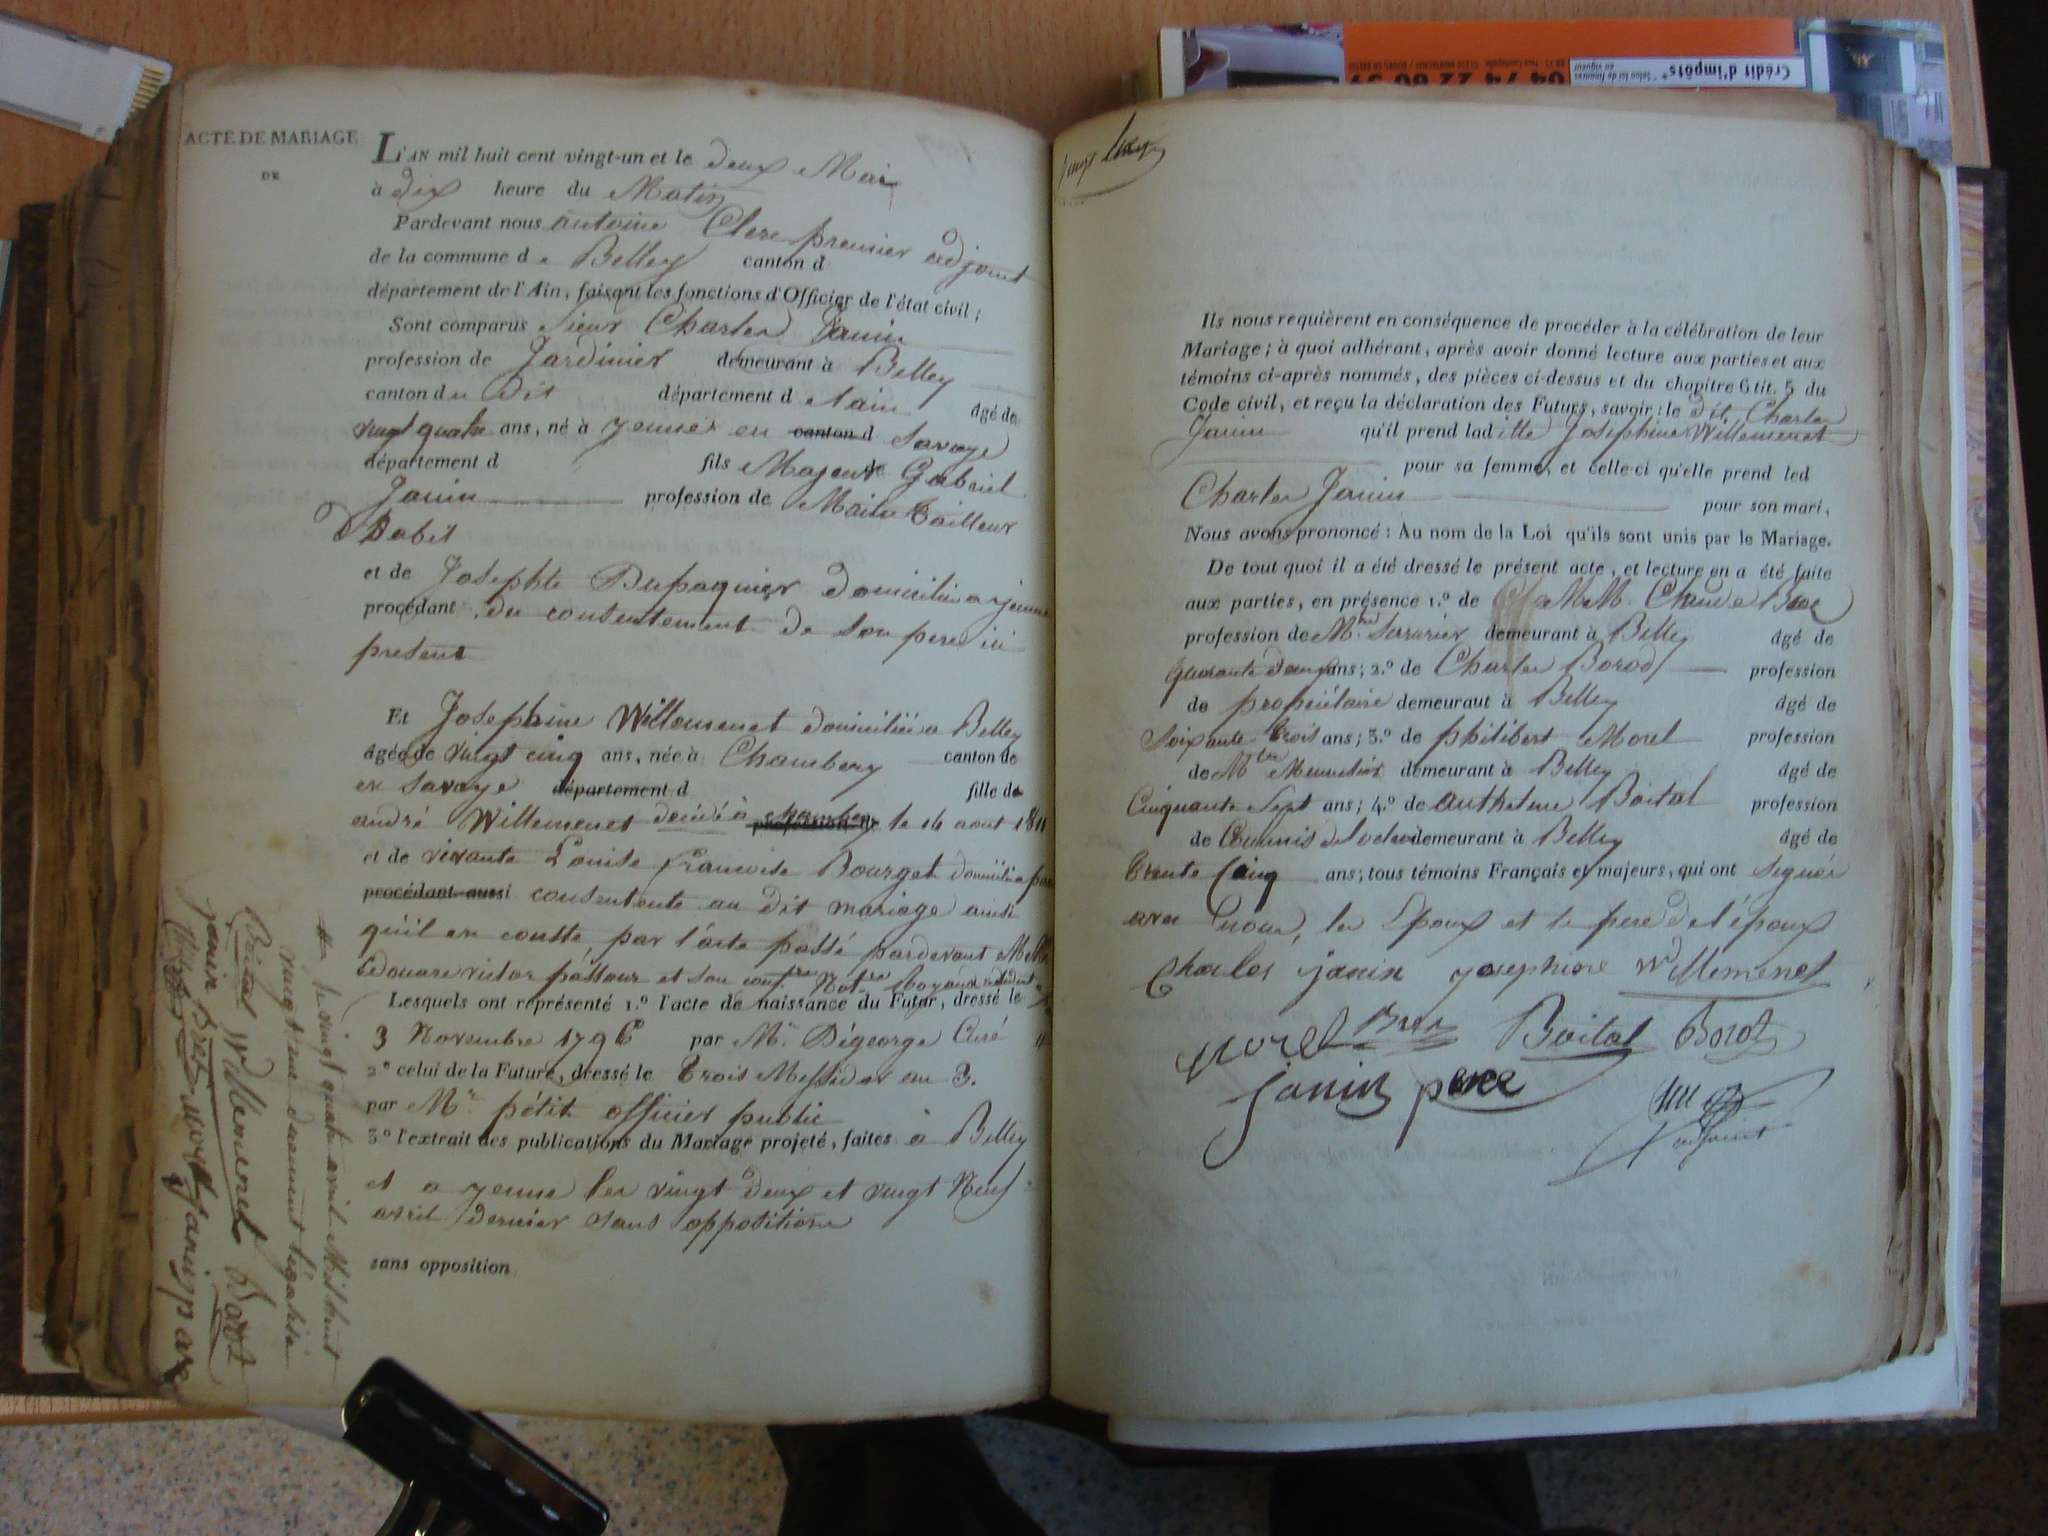 ACTE DE MARIAGE
DE
L'AN mil huit cent vingt-un et le deux Mai
à dix heure du Matin
Pardevant nous antoine Clerc premier adjoint
de la commune de Belley canton d
département de l'Ain, faisant les fonctions d'Officier de l'état civil;
Sont comparus Sieur Charles Janin
profession de Jardinier demeurant à Belley
canton du Dit département de lain âgé de
vingt quatre ans, né à yenne en canton d Savoye
département d fils Majeur de Gabriel
Janin profession de Maitre tailleur
D habit
et de Josephte Dupaquier domiciliée a yenne
procédant du consentement de son pere ici
present
Et Josephine Willemenet domiciliée a Belley
âgée de vingt cinq ans, née à Chambery canton de
en Savoye département d fille de
andré Willemenet décédé à profession de le 16 aout 1811
et de vivante Louise Francoise Bourget domiciliée
procédant aussi consentente au dit mariage ainsi
qu'il en conste par l'acte passé pardevant
Edouare victor et son Notre
Lesquels ont représenté 1.º l'acte de naissance du Futur, dressé le
3 Novembre 1796 par Mr. Dégeorge Curé
2º celui de la Future, dressé le trois Messidor an 3.
par Mr. pétit officier public
3º l'extrait des publications du Mariage projeté, faites à Belley
et a yenne les vingt deux et vingt Neuf
avril dernier sans opposition
sans opposition
le vingt quatre avril Mil huit
vingt une dument légalisé
Boital Willemenet Borot
janin Brer morel janin pere
Ils nous requièrent en conséquence de procéder à la célébration de leur
Mariage; à quoi adhérant, après avoir donné lecture aux parties et aux
témoins ci-après nommés, des pièces ci-dessus et du chapitre 6 tit. 5 du
Code civil, et reçu la déclaration des Futurs, savoir: le dit Charles
Janin qu'il prend ladite Josephine Willemenet
pour sa femme, et celle-ci qu'elle prend led
Charles Janin pour son mari,
Nous avons prononcé: Au nom de la Loi qu'ils sont unis par le Mariage.
De tout quoi il a été dressé le présent acte, et lecture en a été faite
aux parties, en présence 1.º de MM. Claude
profession de Serrurier demeurant à Belley âgé de
Quarante deux ans; 2.º de Charles Borod profession
de propriétaire demeurant à Belley âgé de
Soixante trois ans; 3.º de philibert Morel profession
de Mtre Menuisier demeurant à Belley âgé de
Cinquante Sept ans; 4.º de anthelme Boital profession
de Commis demeurant à Belley âgé de
trente Cinq ans; tous témoins Français et majeurs, qui ont signés
avec nous, les Epoux et le pere de l'époux
charles janin josephine willemenet
morel Brer Boital Borot
janin pere
adjoint